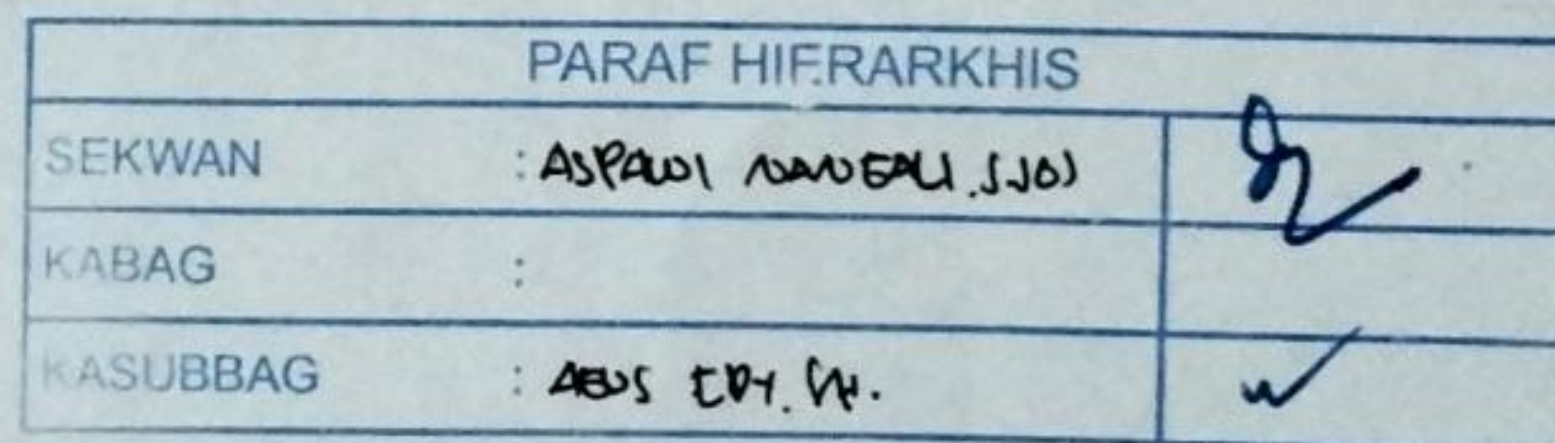 PARAF HIERARKHIS
SEKWAN : ASPAWI
KABAG :
KASUBBAG : AGUS EDY. SH.